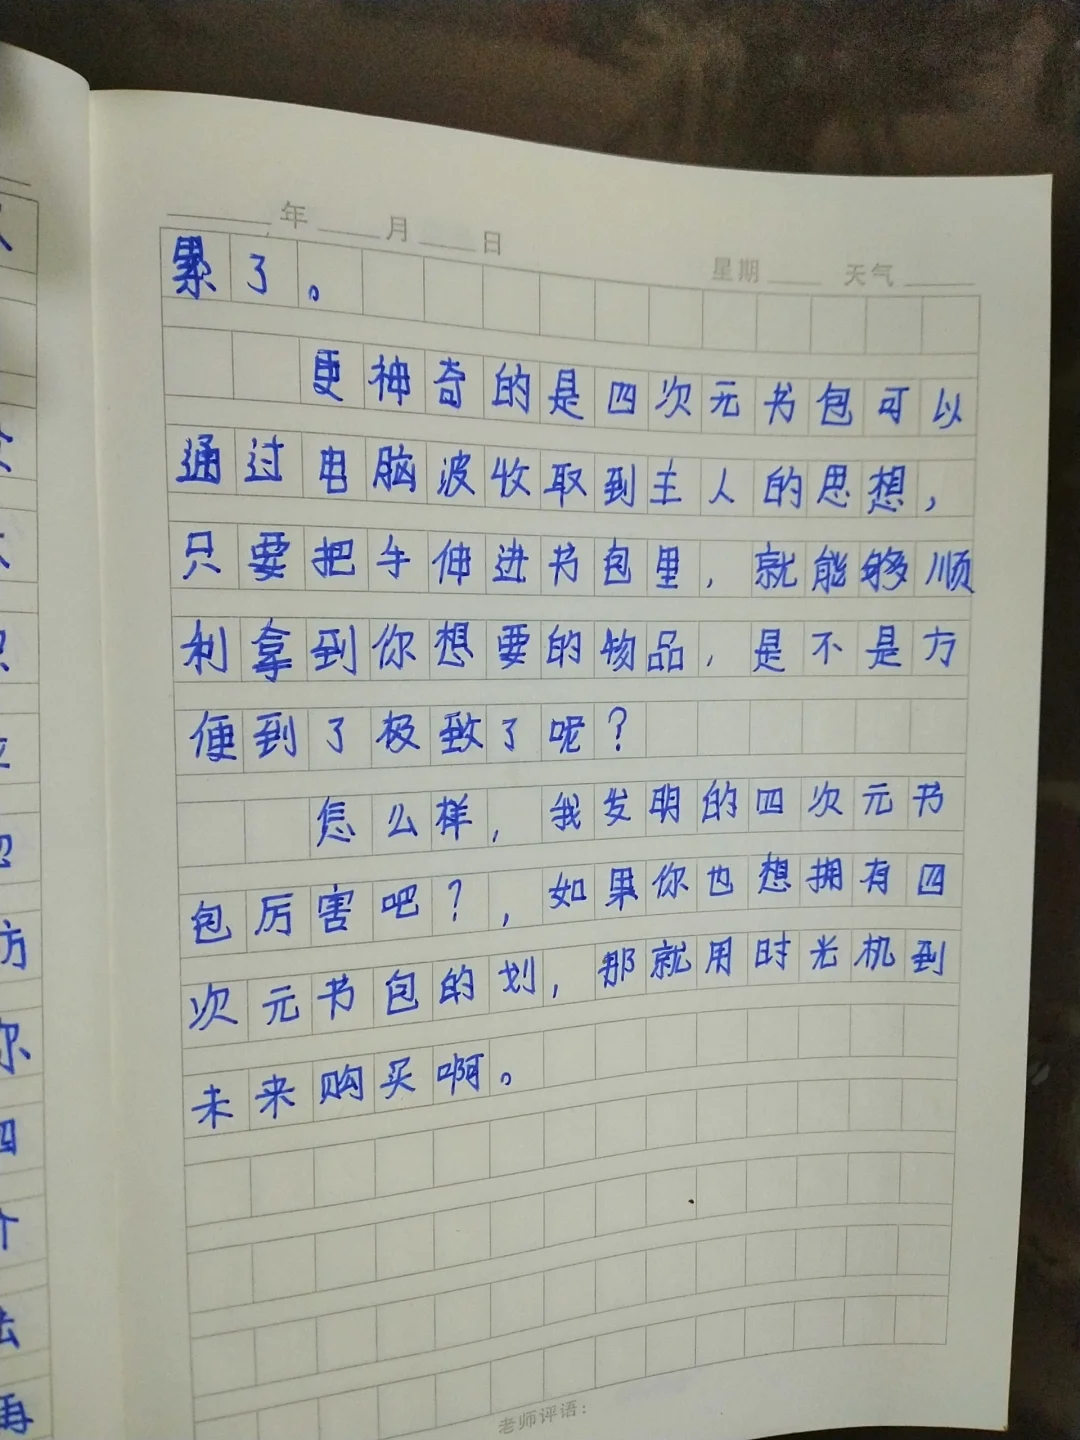 年 月 日
星期 天气
累了。
更神奇的是四次元书包可以
通过电脑波收取到主人的思想，
只要把手伸进书包里，就能够顺
利拿到你想要的物品，是不是方
便到了极致了呢？
怎么样，我发明的四次元书
包厉害吧？，如果你也想拥有四
次元书包的划，那就用时光机到
未来购买啊。
老师评语：